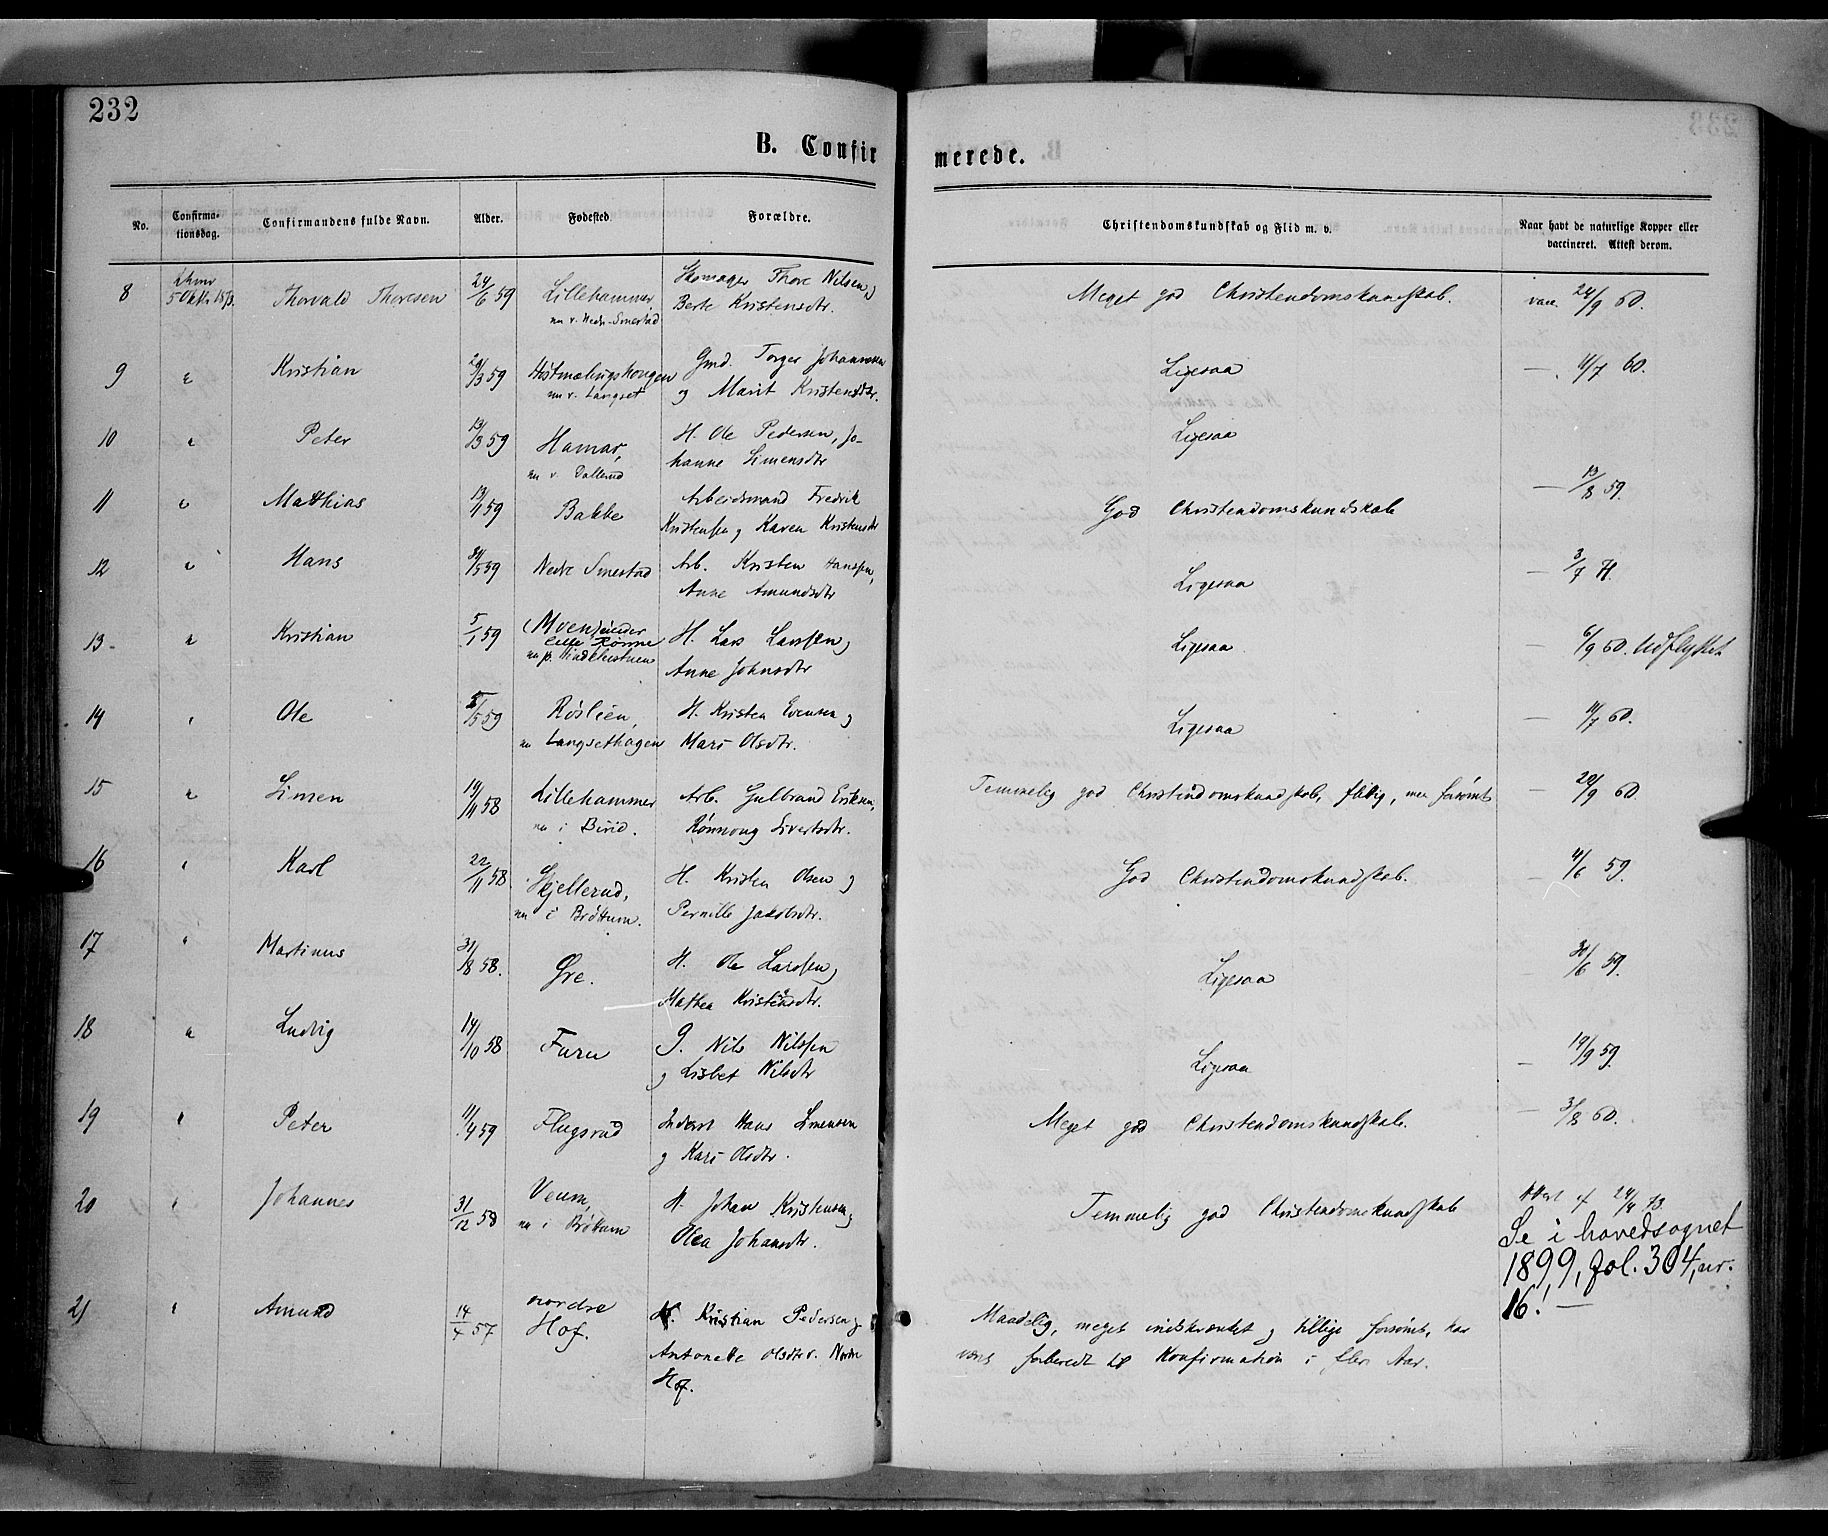 232
B. Confirmerede.
No. Confirmationsdag. Confirmandens fulde Navn. Alder. Fødested. Forældre. Christendomskundskab og Flid m. v. Naar havt de naturlige Kopper eller vaccineret. Attest derom.
8 5 Thorvald Thoresen 24/6 59 Lillehammer, Skomager Thore Nilsen, Meget god Christendomskundskab. vacc. 24/9 60.
nu v. Nedre-Smestad Berte Kristensdtr.
9 " Kristian 59 Gmd. Torger Johannesen Ligesaa — 11/7 60.
nu v. Langset og Marit Kristensdtr.
10 " Peter 59 Hamar, H. Ole Pedersen, Jo- Ligesaa
nu v. Dallerud hanne Simensdtr
11 " Matthias 59 Bakke Arbeidsmand Fredrik God Christendomskundskab — 13/8 59.
Kristensen og Karen Kristensdtr
12 " Hans 59 Nedre Smestad Arb. Kristen Hanssen, Ligesaa — 3/7
Anne Amundsdtr
13. " Kristian 5/1 59 (Moen) under H. Lars Larssen og Ligesaa — 6/9 60. Udflyttet
Anne Johnsdtr
14 " Ole 59 Røslien, H. Kristen Evensen og Ligesaa — 11/7 60.
nu Langsethagen Mari Olsdtr.
15 " Simen 19/11 58 Lillehammer Arb. Gulbrand Eriksen, Temmelig god Christendomskundskab, flittig, men forsömt — 20/9 60.
nu i Birid. Rønnoug Sivertsdtr.
16 " Karl 22/11 58 Skjellerud, H. Kristen Olsen og God Christendomskundskab. — 4/6 59.
nu i Brøttum. Pernille Jakobsdtr.
17 " Martinus 31/8 58. Øre. H. Ole Larssen og Ligesaa 59.
Mathea Kristiansdtr.
18 " Ludvig 14/10 58 Furu G. Nils Nilssen Ligesaa — 19/9 59.
og Lisbet Nilsdtr
19 " Peter 11/4 59 Flugsrud Inderst Hans Simensen Meget god Christendomskundskab. — 3/8 60.
og Kari Olsdtr.
20 " Johannes 31/12 58 Veum, H. Johan Kristensen og Temmelig god Christendomskundskab
nu i Brøttum Olea Johansdtr.
Se i hovedsognet
1899, fol. 304, nr.
16! —
21 " Amund 14/4 57 nordre H. Kristian Pedersen og Maadelig, meget indskrænket og tillige forsømt, har
Hof. Antonette Olsdtr v. Nordre været forberedt til Konfirmation i flere Aar.
Hof.